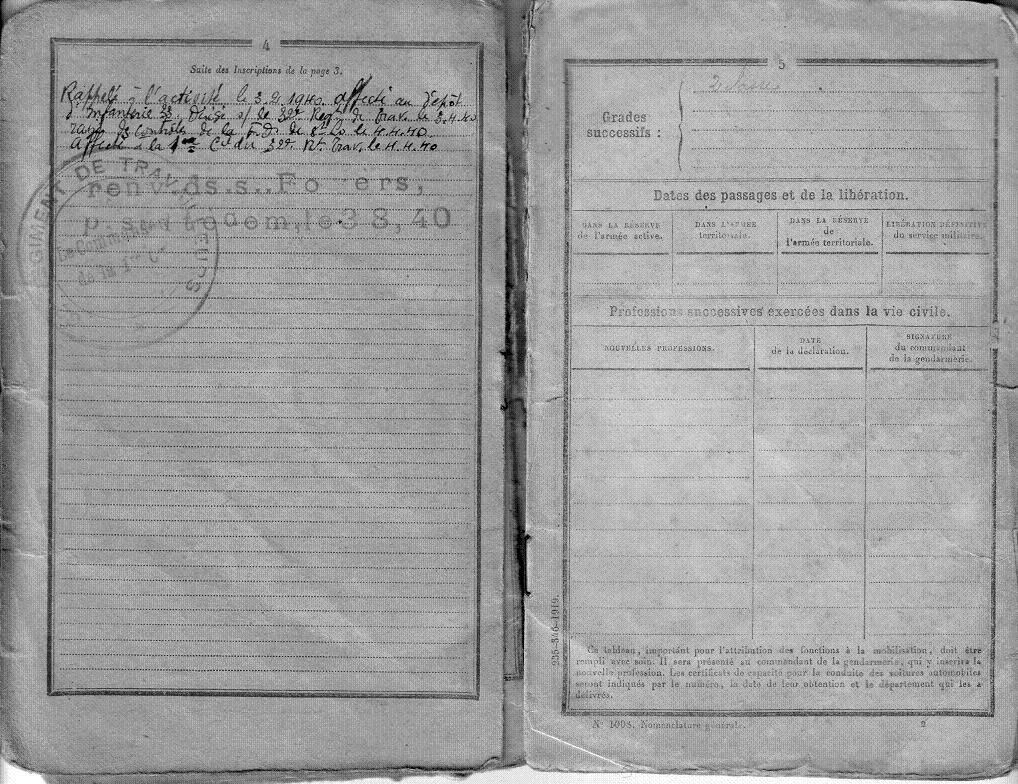 4
Suite des Inscriptions de la page 3.
Rappelé à l'activité le 3.2.1940. Affecté au Dépôt
d'Infanterie Dirigé s/ le 32e Regt de Trav. le 3.4.40
rayé des Contrôles de la le 4.4.40.
Affecté à la 1ère Cie du 32e Rt Trav. le 4.4.40
GIMENT DE TRAVAILLEURS
Le Commandant
de la 1re Cie
le 3 8, 40
5
Grades
successifs :
2e
Dates des passages et de la libération.
DANS LA RÉSERVE
de l'armée active.
DANS L'ARMÉE
territoriale.
DANS LA RÉSERVE
de
l'armée territoriale.
LIBÉRATION DÉFINITIVE
du service militaire.
Professions successives exercées dans la vie civile.
NOUVELLES PROFESSIONS.
DATE
de la déclaration.
SIGNATURE
du commandant
de la gendarmerie.
Ce tableau, important pour l'attribution des fonctions à la mobilisation, doit être
rempli avec soin. Il sera présenté au commandant de la gendarmerie, qui y inscrira la
nouvelle profession. Les certificats de capacité pour la conduite des voitures automobiles
seront indiqués par le numéro, la date de leur obtention et le département qui les a
délivrés.
N° 1008. Nomenclature générale.
2